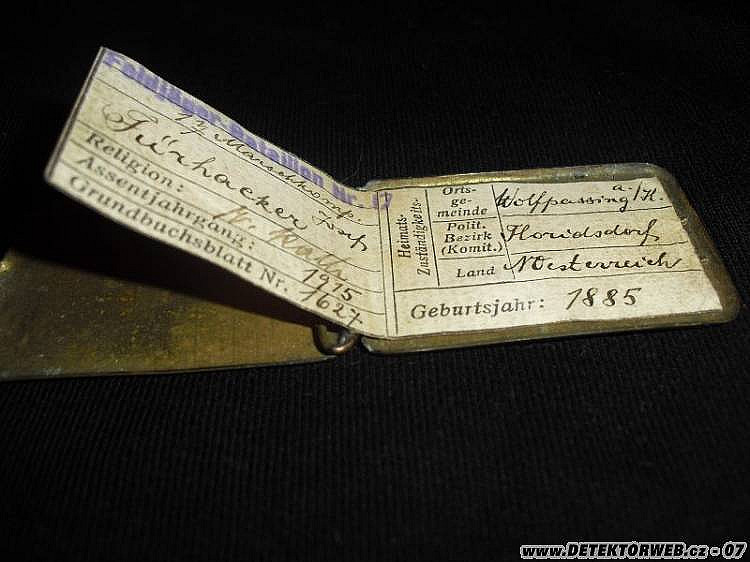 Feldjäger-Bataillon Nr. 17
Marschkomp.
Religion:
Assentjahrgang: 1915
Grundbuchsblatt Nr. 1627
Heimats-
Zuständigkeits-
Orts-
ge-
meinde Wolfpassing a./H.
Polit.
Bezirk
(Komit.) Floridsdorf
Land NOesterreich
Geburtsjahr: 1885
www.DETEKTORWEB.cz - 07